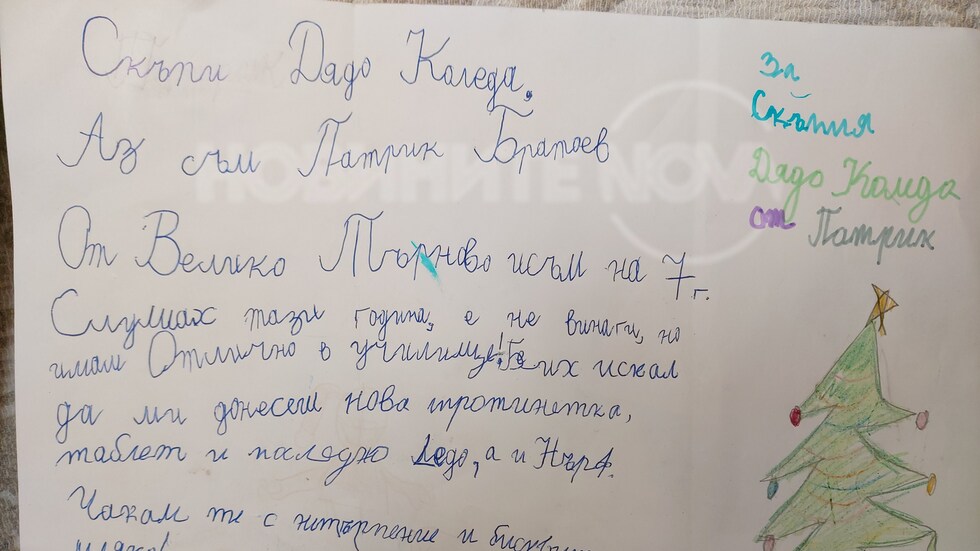 Скъпи Дядо Коледа,
Аз съм Патрик Братоев
От Велико Търново исъм на 7г.
Слушах тази година, е не винаги, но
имам Отлично в училище! Бе их искал
да ми донесеш нова тротинетка,
таблет и последно Ledo, а и Нърф.
Чакам те с нетърпение и
мляко!
За
Скъпия
Дядо Коледа
от Патрик
НОВИНИТЕ NOVA